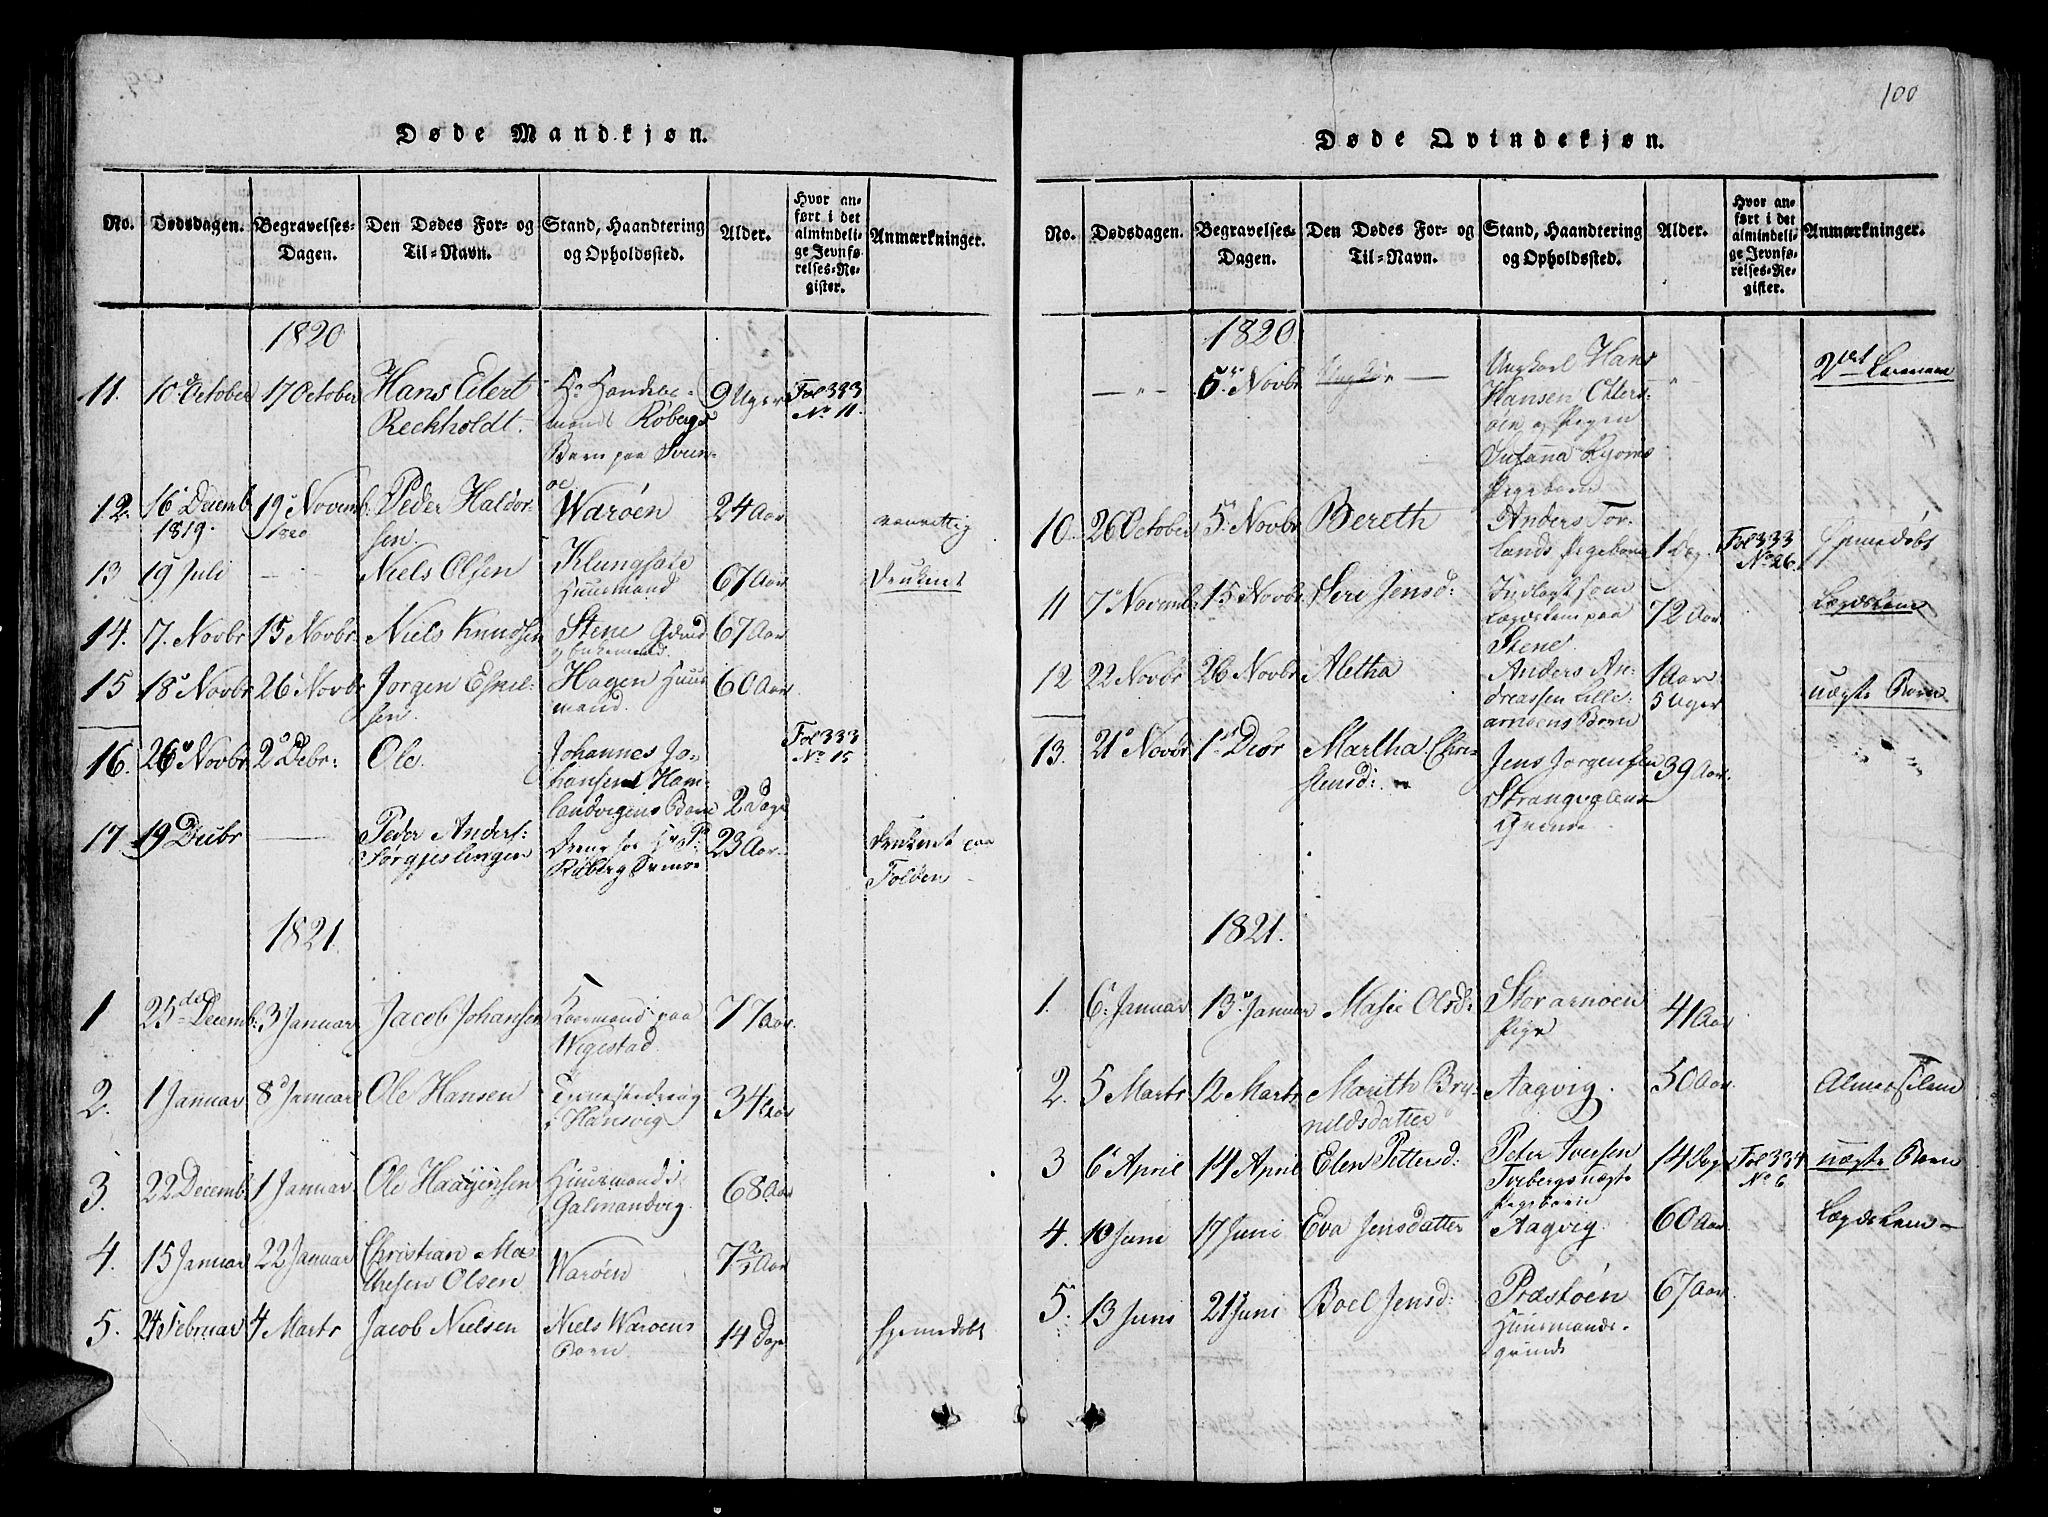 Døde Mandkjøn.
No. Dødsdagen. Begravelses-Dagen. Den Dødes For- og Til-Navn. Stand, Haandtering og Opholdssted. Alder. Hvor anført i det almindelige Jevnførelses-Register. Anmærkninger.
1820
11. 10de October 17 October Hans Edert Reckholdt. Hr Handelsmand Röbergs Barn paa 9 Uger Fol 333 No 11.
12. 16 Decemb 1819. 19 Novemb. 1820 Peder Haldorsen. Waröen 24 Aar vanvittig
13 19 Juli — Niels Olsen Huusmand 67 Aar Druknet
14. 7. Novbr 15 Novbr Niels Knudsen Stene 67 Aar
15 18 Novbr 26 Novbr Jorgen Eskilsen. Hagen Huusmand. 60 Aar
16. 26 Novbr 2 Debr: Ole. Johannes Johansens Hamlandvigens Barn 2 Dage Fol 333 No 15
17 19 Debr — Peder Anders: Dreng hos 23 Aar. druknet paa Folden
1821.
1 25de Decemb: 3 Januar Jacob Johansen Kaarmand paa Wigestad. 77 Aar.
2. 1 Januar 8 Januar Ole Hansen i Hansvig 34 Aar
3. 22 Decemb 1 Januar Ole Haagensen Huusmand i Galmandvig. 68 Aar
4. 15 Januar 22 Januar Christian Mathesen Olsen Waröen 7 Aar
5. 24 Februar 4 Marts Jacob Nielsen Niels Waröens Barn 14 Dage hjemedøbt
100
Døde Qvindekjøn.
No. Dødsdagen. Begravelses-Dagen. Den Dødes For- og Til-Navn. Stand, Haandtering og Opholdssted. Alder. Hvor anført i det almindelige Jevnførelses-Register. Anmærkninger.
1820
— " — 5 Novbr — Ungkarl Hans Hansen og Pigen Susana Pigebarn
10. 26 October 5 Novbr Bereth Anders Torlands Pigebarn 1 Dag Fol 333 No 26. Hjemedøbt
11 7 Novemb 15 Novbr Siri Jensd: Indlagt som Lægdslem paa Stene. 72 Aar Lægdslem
12 22 Novbr 26 Novbr Aletha Anders Andreassen Lille arnöens Barn 1 Aar 5 Uger uægte Barn
13. 21 Novbr 1 Debr Martha Christensd: Jens Jorgensen Qvinde. 39 Aar.
1821.
1. 6 Januar 13 Januar Masie Olsd: Storarnöen Pige 41 Aar
2. 5 Marts 12 Marts Marith Brynildsdatter Aagvig. 50 Aar. Almesselem
3 6 April 14 April Elen Pettersd: Peter Iversen Pigebarn 14 Dage Fol 334 No 6. uægte Barn
4. 10 Juni 17 Juni Eva Jensdatter Aagvig. 60 Aar Lægdslem
5. 13 Juni 21 Juni Boel Jensd: Præstöen Huusmandsqvinde 67 Aar